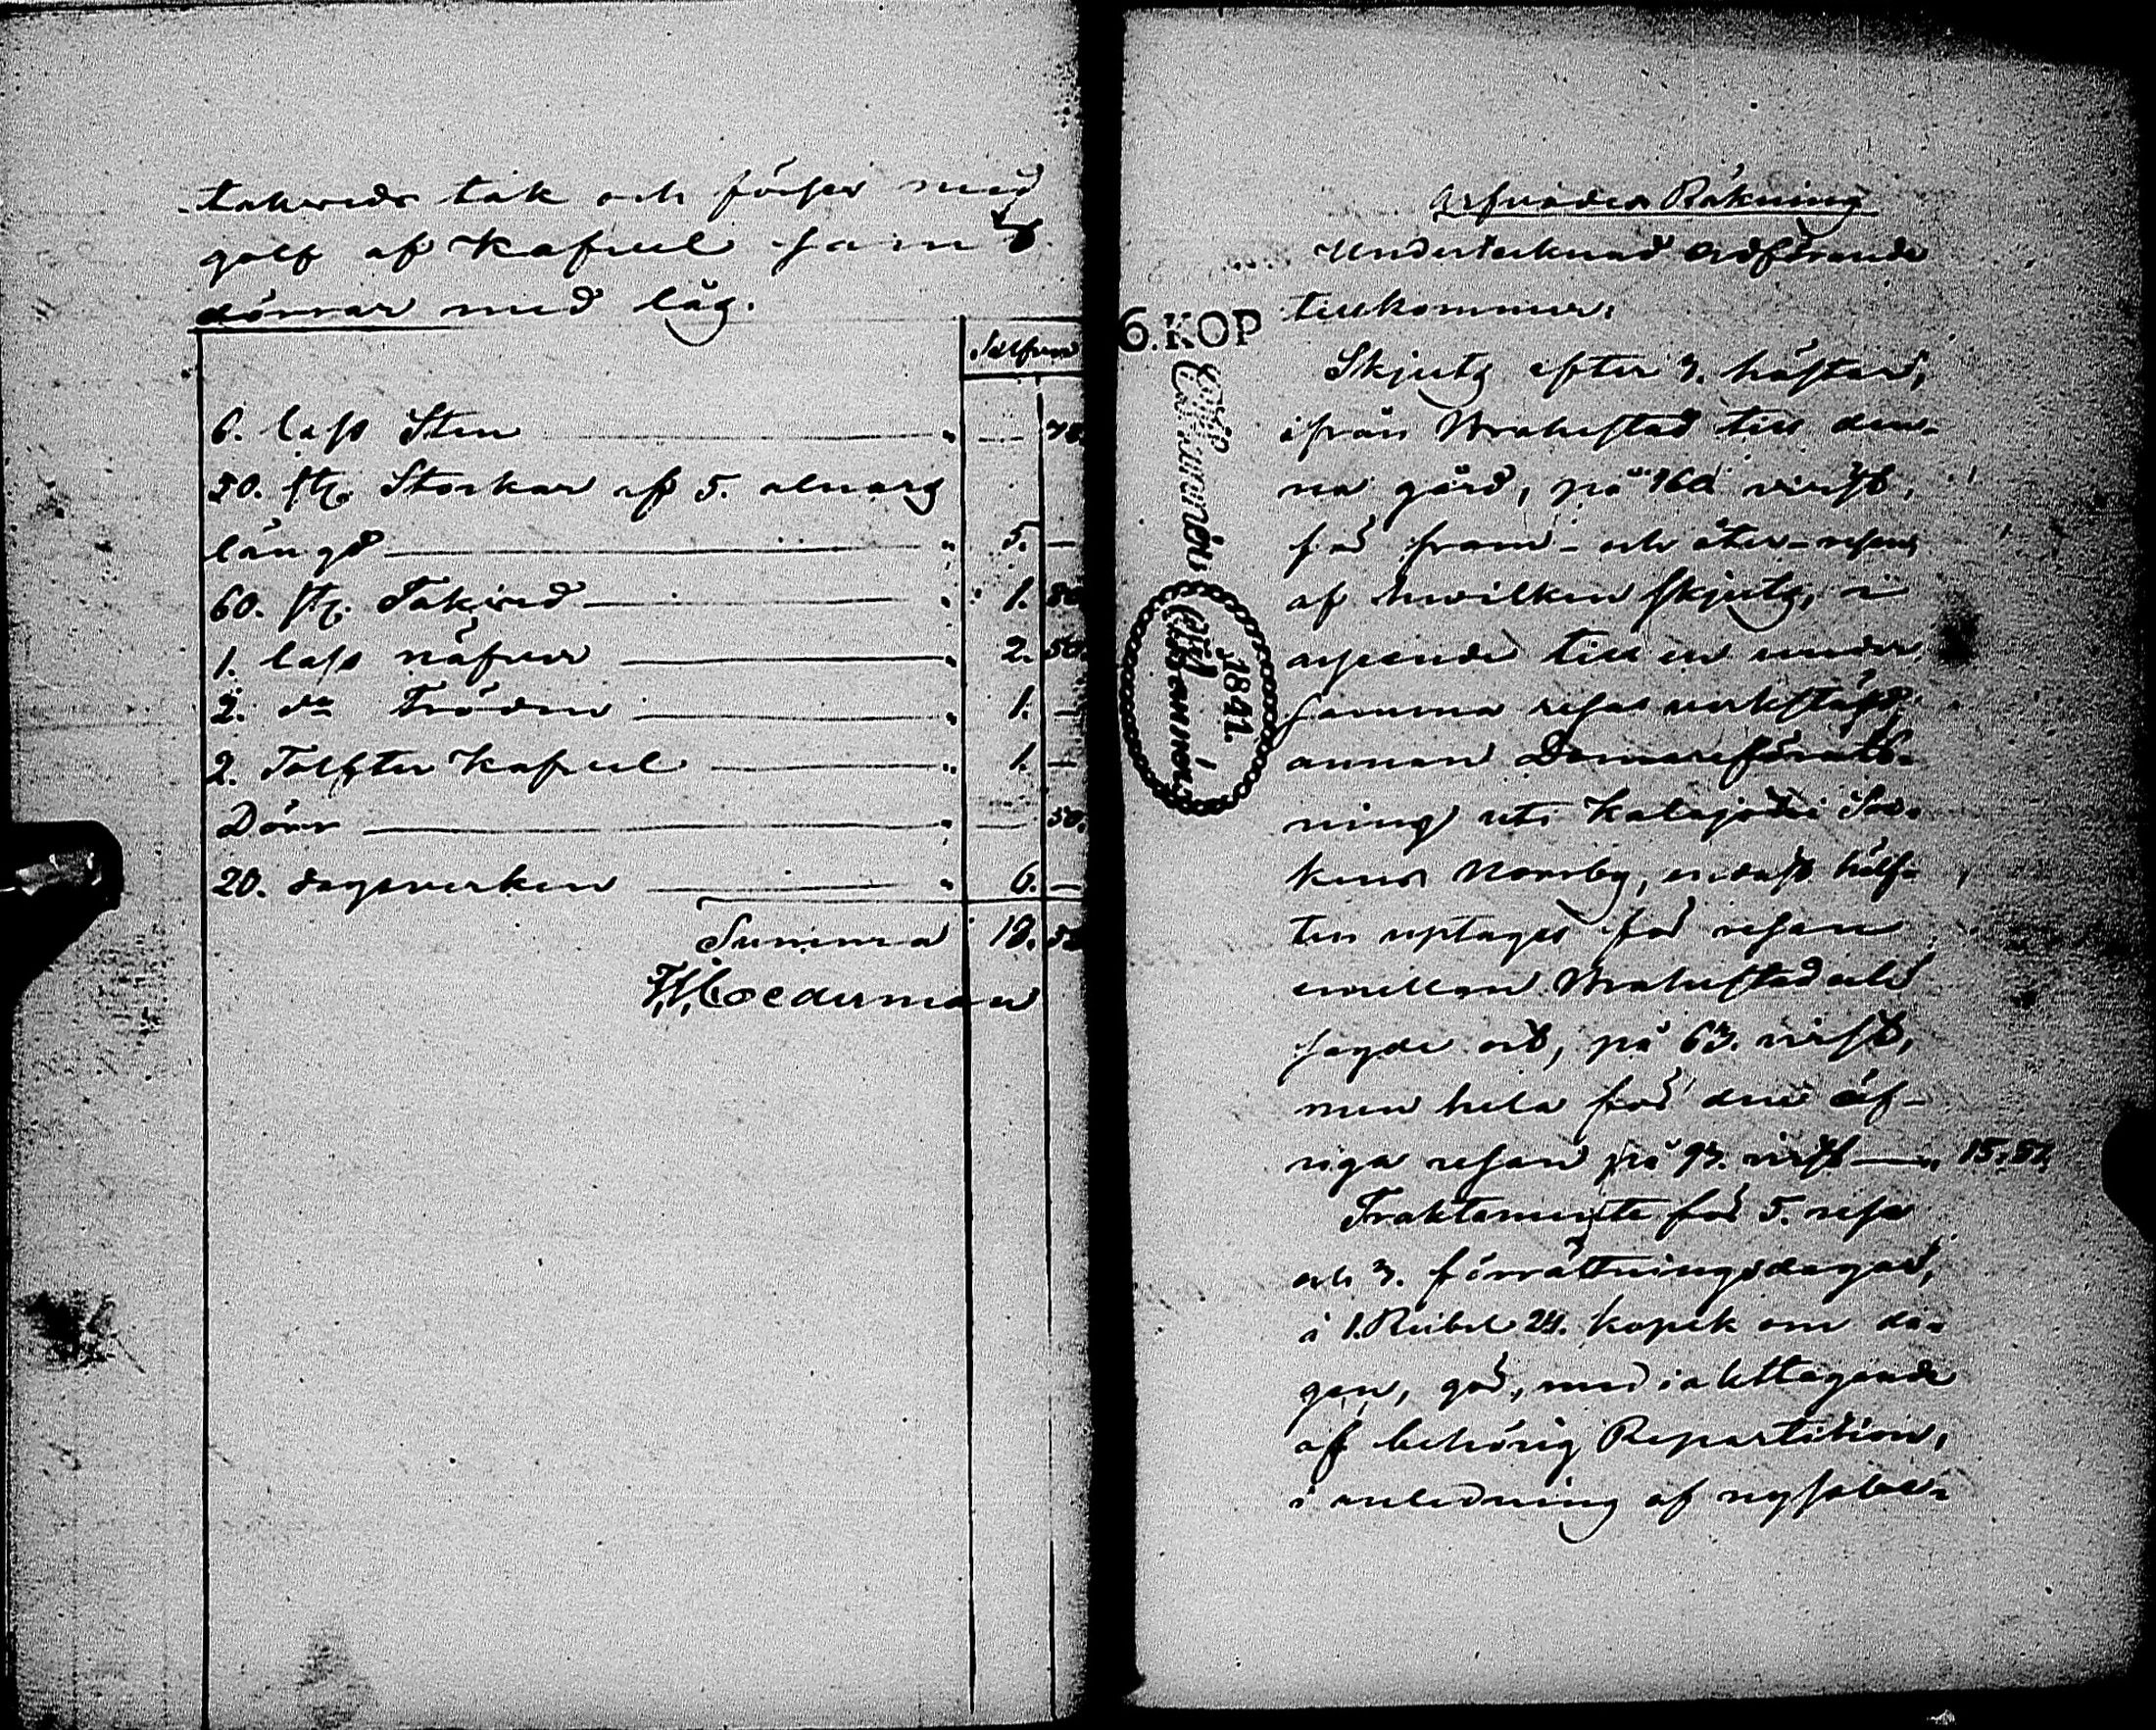 takveds tak och förses med
golf af Kafvel samt
dörrar med låg.
Silfver
6. lass Sten " — 70.
50. st. Stockar af 5. alnars
längd " 5. —
60. st. Takved " 1. 80
1. lass näfver " 2. 50.
2. do Tröden " 1. —
2. Tolfter Kafvel " 1. —
Dörr " — 50.
20. dagsverken " 6. —
Summa 18. 50
Arfvodes Räkning
Undertecknad Ordförande
tillkommer:
6. KOP
1841.
Skjuts efter 3. hästar,
ifrån Brahestad till den-
na gård, på 160 verst,
för fram- och åter-resan
af hvilken skjuts, i
anseende till en under
samma resa verkstäld
annan Domareförrätt-
ning uti Kalajoki Soc-
kens Norrby, endast hälf-
ten uptages för resan
emellan Brahestad och
sagde ort, på 63. verst,
men hela för den öf-
riga resan på 97. verst — " 15. 57.
Traktamente för 5. rese
och 3. förrättningsdagar,
à 1. Rubel 24. kopek om da-
gen, gör, med iakttagande
af behörig Repartition,
i anledning af nyssber-